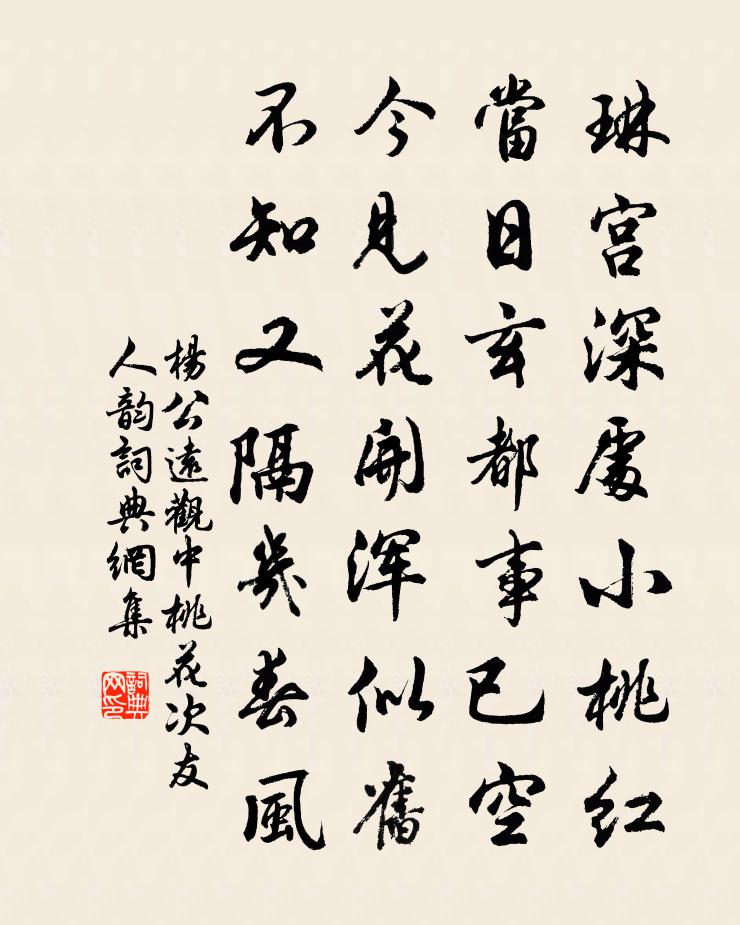 琳宫深處小桃红
當日玄都事已空
今見花開浑似舊
不知又隔幾春風
楊公遠觀中桃花次友
人韵詞典網集
詞典
网印